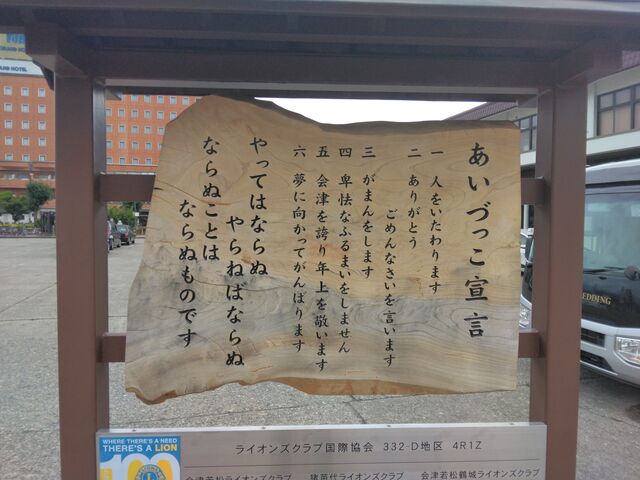 あいづっこ宣言
一 人をいたわります
二 ありがとう
ごめんなさいを言います
三 がまんをします
四 卑怯なふるまいをしません
五 会津を誇り年上を敬います
六 夢に向かってがんばります
やってはならぬ
やらねばならぬ
ならぬことは
ならぬものです
ライオンズクラブ国際協会 332-D地区 4R1Z
会津若松ライオンズクラブ 猪苗代ライオンズクラブ 会津若松鶴城ライオンズクラブ
WHERE THERE'S A NEED
THERE'S A LION
100
GRAND HOTEL
WEDDING